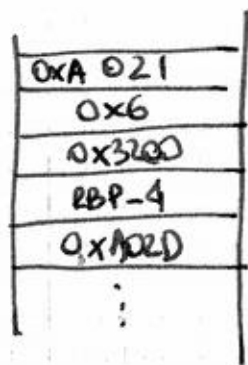 0xA 021
0x6
0x3200
RBP-4
0xA02D
⋮